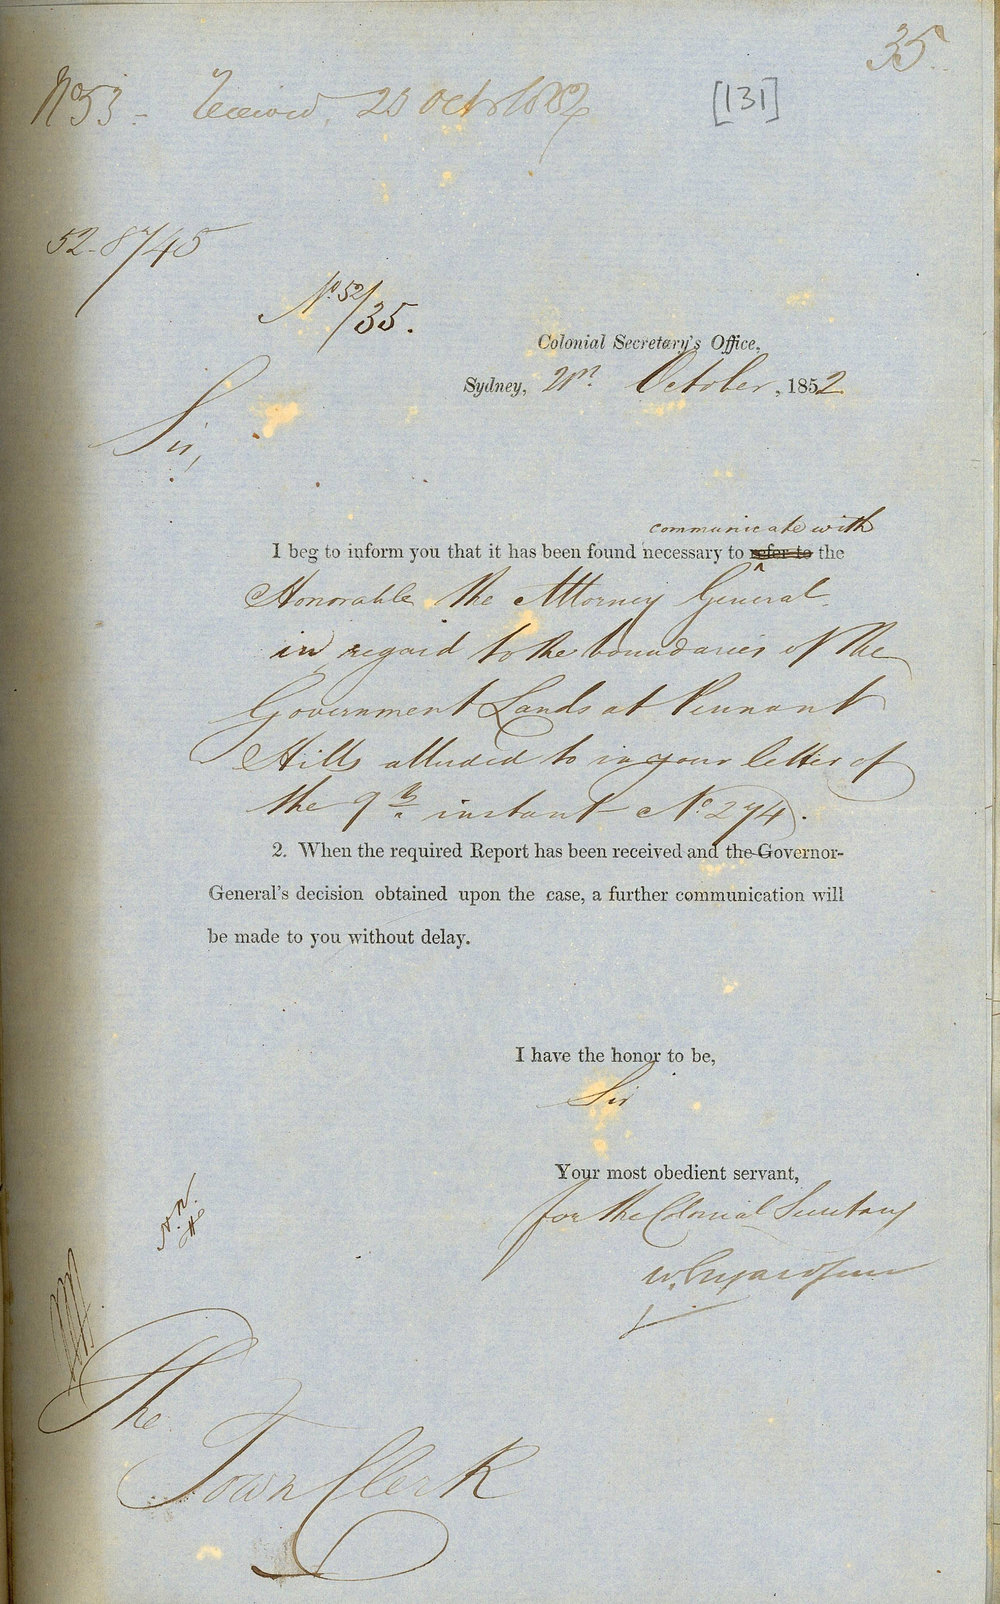 35
No 53 - Received 23 Oct 1852
[131]
52-8745
No. 52/35.
Colonial Secretary's Office,
Sydney, 21st October, 1852
Sir,
communicate with
I beg to inform you that it has been found necessary to refer to the
Honorable the Attorney General
in regard to the boundaries of the
Government Lands at Pennant
Hills alluded to in your letter of
the 9th instant No 274.
2. When the required Report has been received and the Governor-
General's decision obtained upon the case, a further communication will
be made to you without delay.
I have the honor to be,
Sir
Your most obedient servant,
for the Colonial Secretary
W.
The
Town Clerk